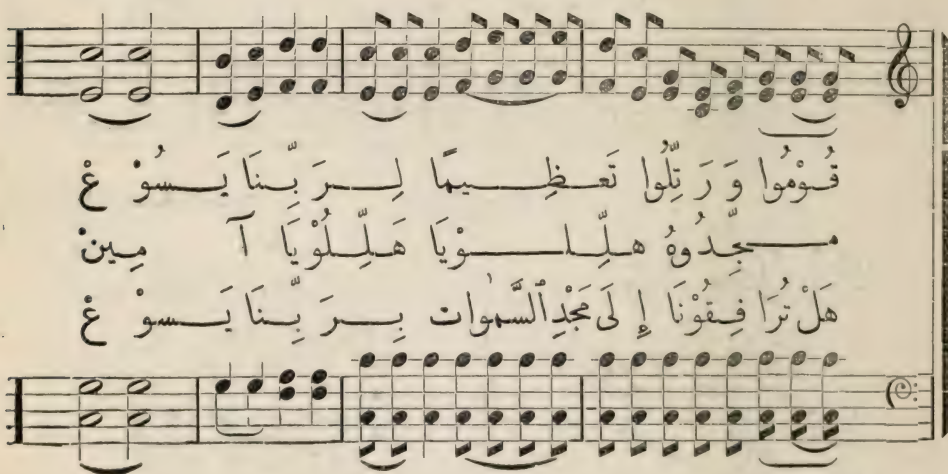 قُوْمُوا وَرَتِّلُوا تَعْظِيمًا لِرَبِّنَا يَسُوْعْ
مَجِّدُوهُ هلِّلِلوْيَا هَلِّلُوْيَا آمِينْ
هَلْ تُرَافِقُوْنَا إِلَى مَجْدِ ٱلسَّمٰوات بِرَبِّنَا يَسوْعْ